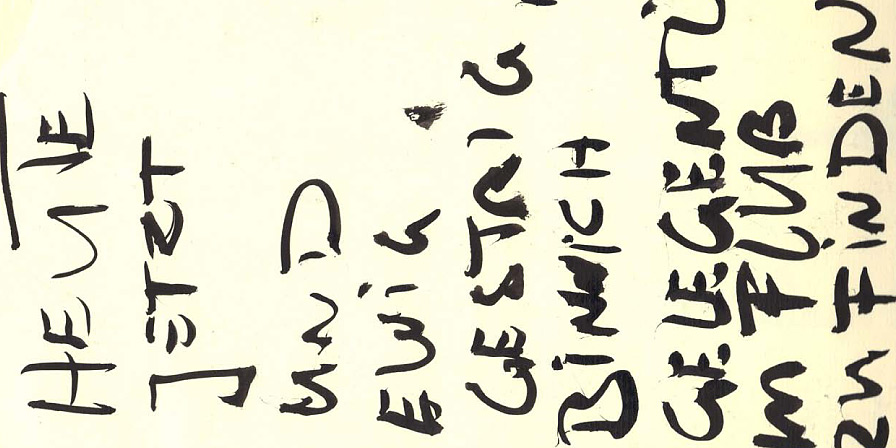 HEUTE
JETZT
UND
EWiG
GESTRIG
BiN ICH
GELEGENTLi
M FLUß
ZU FiNDEN